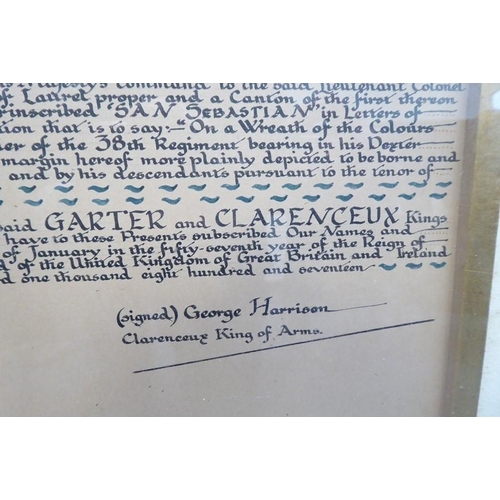 Majesty's command to the said Lieutenant Colonel
of Laurel proper and a Canton of the first thereon
inscribed "SAN SEBASTIAN" in Letters of
tion that is to say:- "On a Wreath of the Colours
er of the 38th Regiment bearing in his Dexter
margin hereof more plainly depicted to be borne and
and by his descendants pursuant to the tenor of
said GARTER and CLARENCEUX Kings
have to these Presents subscribed Our Names and
of January in the fifty-seventh year of the Reign of
of the United Kingdom of Great Britain and Ireland
d one thousand eight hundred and seventeen
(signed) George Harrison
Clarenceux King of Arms.